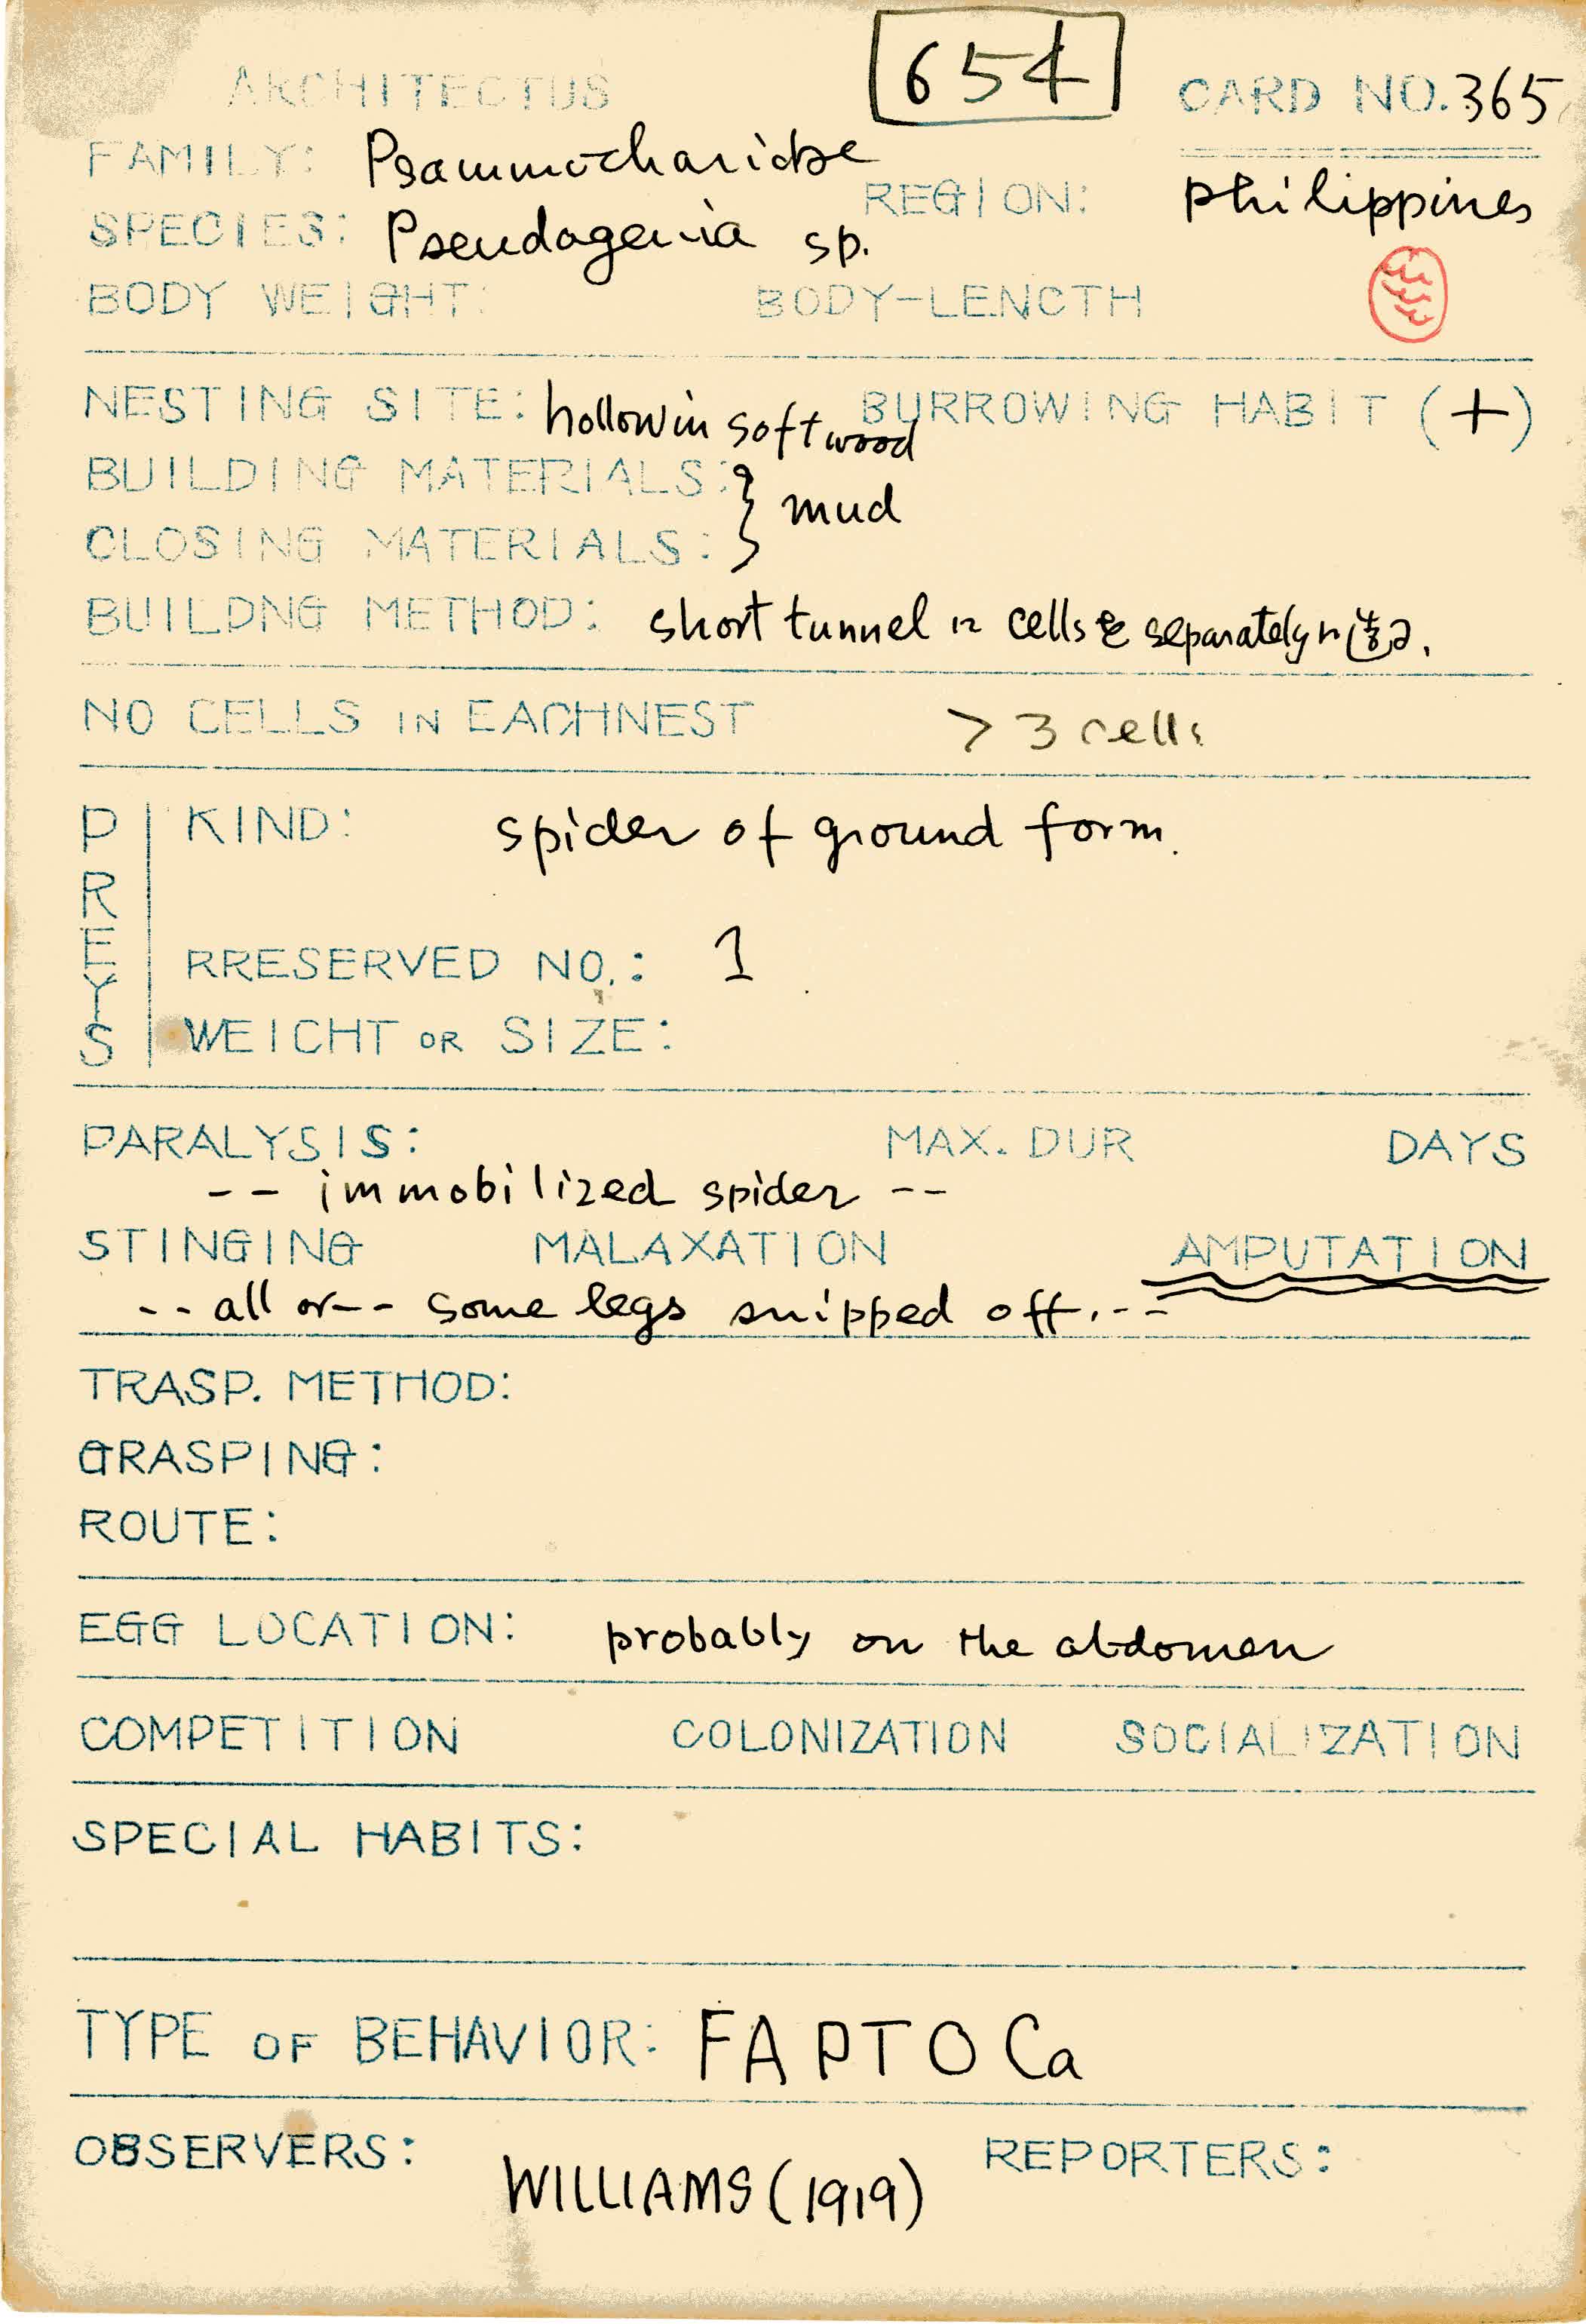 654
ARCHITECTUS CARD NO. 365
FAMILY: Psammocharidae
REGION: Philippines
SPECIES: Pseudagenia sp.
BODY WEIGHT: BODY-LENGTH
NESTING SITE: hollow in soft wood BURROWING HABIT (+)
BUILDING MATERIALS: } mud
CLOSING MATERIALS:
BUILDNG METHOD: short tunnel に cells を separately に作る.
NO CELLS IN EACHNEST > 3 cells
PREYS
KIND: spider of ground form.
RRESERVED NO.: 1
WEICHT OR SIZE:
PARALYSIS: MAX. DUR DAYS
-- immobilized spider --
STINGING MALAXATION AMPUTATION
-- all or -- some legs snipped off. --
TRASP. METHOD:
GRASPING:
ROUTE:
EGG LOCATION: probably on the abdomen
COMPETITION COLONIZATION SOCIALIZATION
SPECIAL HABITS:
TYPE OF BEHAVIOR: FAPTOCa
OBSERVERS: WILLIAMS (1919) REPORTERS: